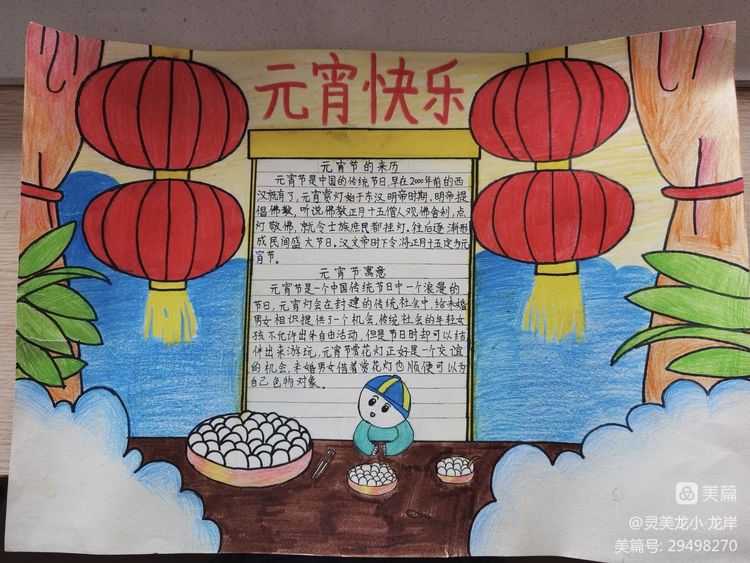 元宵快乐
元宵节的来历
元宵节是中国的传统节日,早在2000年前的西
汉就有了,元宵赏灯始于东汉明帝时期,明帝提
倡佛教,听说佛教正月十五僧人观佛舍利,点
灯敬佛,就令士族庶民都挂灯。往后逐渐形
成民间盛大节日。汉文帝时下令将正月十五定为元
宵节。
元宵节寓意
元宵节是一个中国传统节日中一个浪漫的
节日,元宵灯会在封建的传统社会中,给未婚
男女相识提供了一个机会,传统社会的年轻女
孩不允许出来自由活动,但是节日时却可以结
伴出来游玩,元宵节赏花灯正好是一个交谊
的机会,未婚男女借着赏花灯也顺便可以为
自己色物对象。
美篇
@灵美龙小·龙岸
美篇号: 29498270